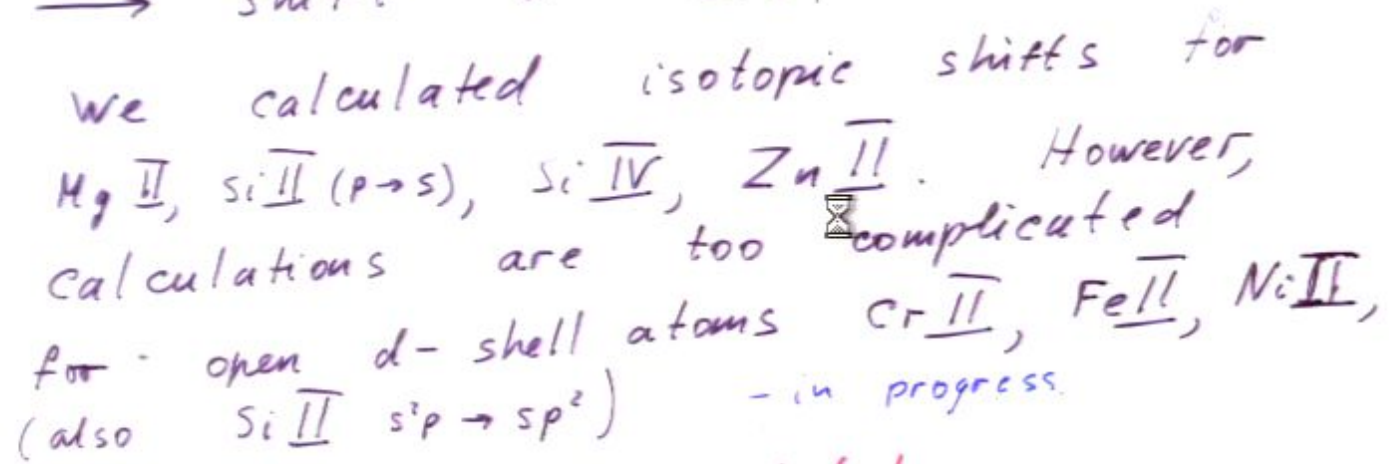 We calculated isotopic shifts for
Mg II, Si II (p→s), Si IV, Zn II. However,
calculations are too complicated
for open d-shell atoms Cr II, Fe II, Ni II,
(also Si II s²p → sp²) - in progress.